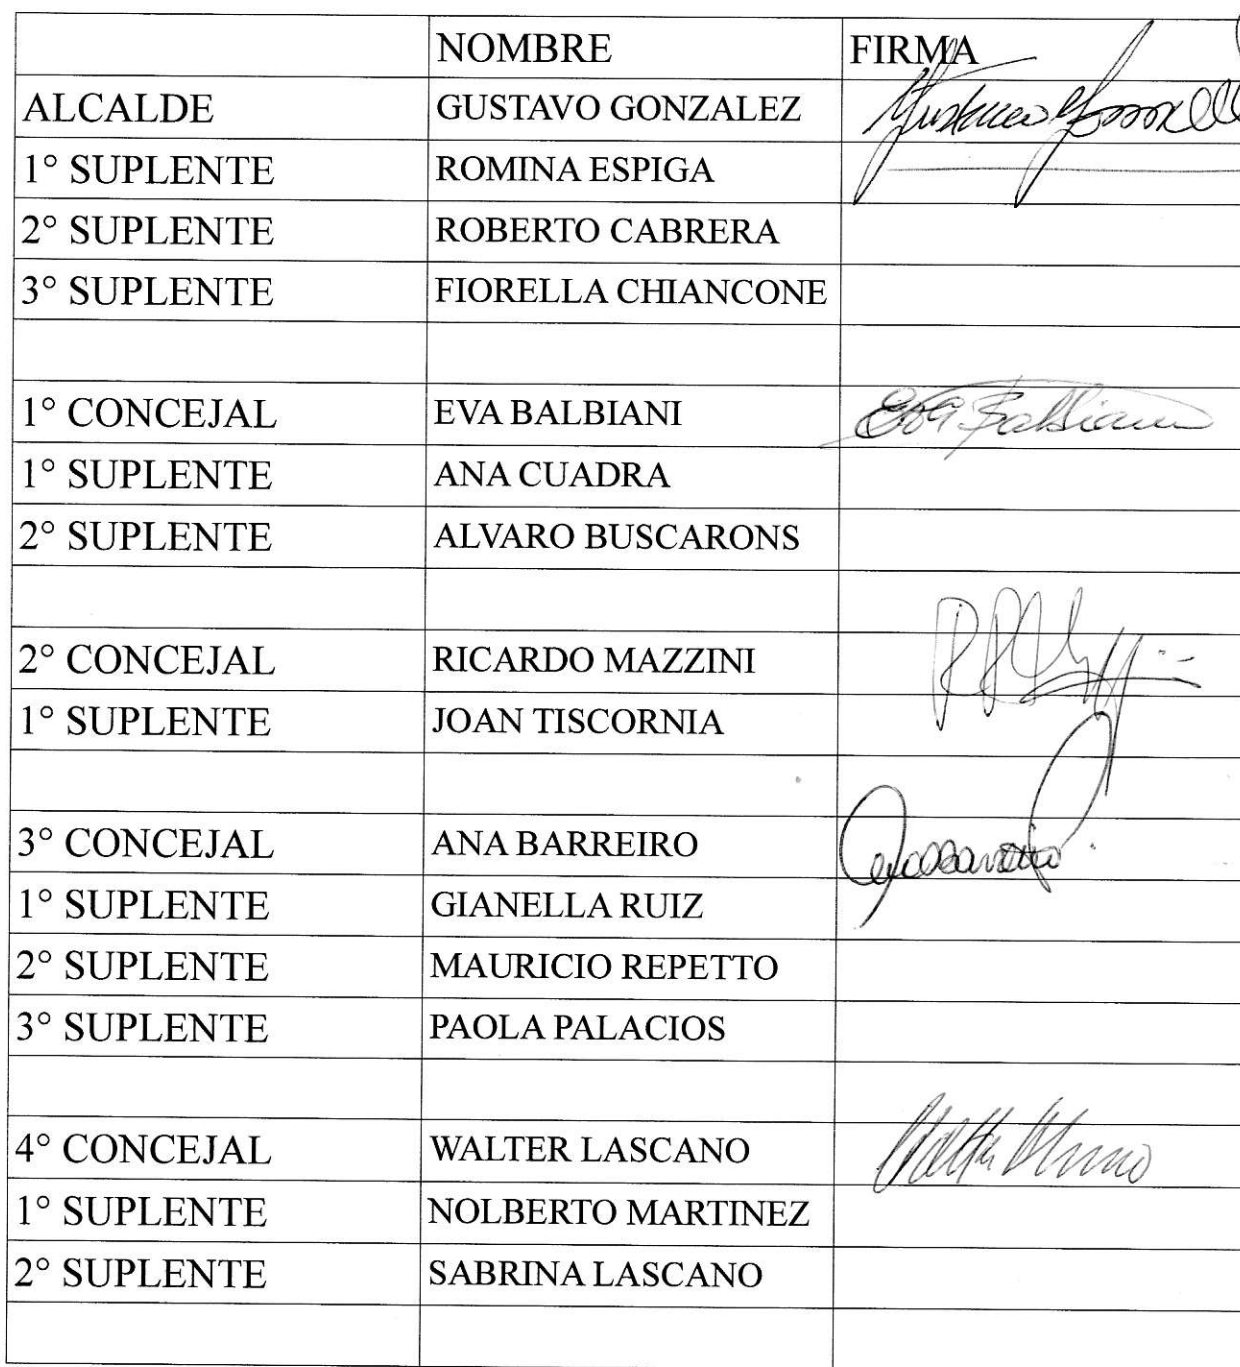 NOMBRE FIRMA
ALCALDE GUSTAVO GONZALEZ Gustavo Gonzalez
1° SUPLENTE ROMINA ESPIGA
2° SUPLENTE ROBERTO CABRERA
3° SUPLENTE FIORELLA CHIANCONE
1° CONCEJAL EVA BALBIANI Eva Balbiani
1° SUPLENTE ANA CUADRA
2° SUPLENTE ALVARO BUSCARONS
2° CONCEJAL RICARDO MAZZINI
1° SUPLENTE JOAN TISCORNIA
3° CONCEJAL ANA BARREIRO
1° SUPLENTE GIANELLA RUIZ
2° SUPLENTE MAURICIO REPETTO
3° SUPLENTE PAOLA PALACIOS
4° CONCEJAL WALTER LASCANO Walter
1° SUPLENTE NOLBERTO MARTINEZ
2° SUPLENTE SABRINA LASCANO